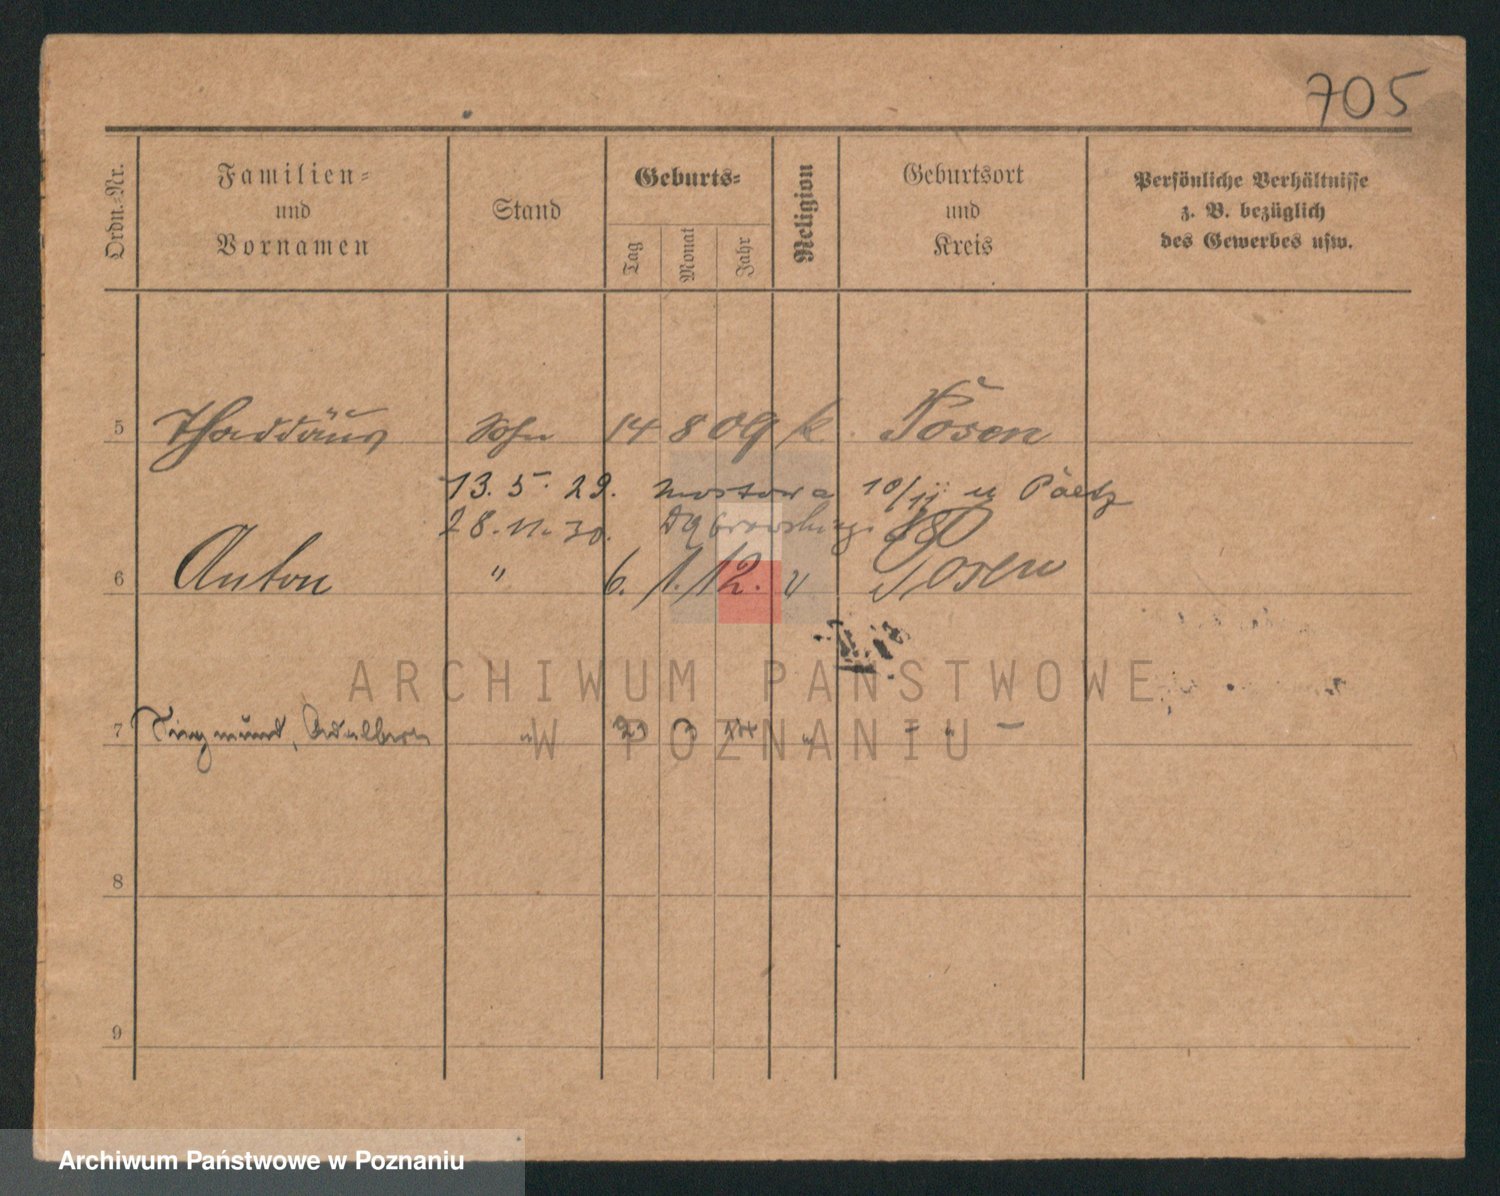 705
Ordn.-Nr.
Familien-
und
Vornamen
Stand
Geburts-
Tag
Monat
Jahr
Religion
Geburtsort
und
Kreis
Persönliche Verhältnisse
z. B. bezüglich
des Gewerbes usw.
5 Thaddäus Sohn 14 8 09 k. Posen
13. 5. 29. Mostowa 10/11 u
28. 11. 30.
6 Anton " 6. 1. 12. " Posen
7 Siegmund, Adalbert " 23 3 14 " - " -
8
9
ARCHIWUM PAŃSTWOWE
W POZNANIU
Archiwum Państwowe w Poznaniu